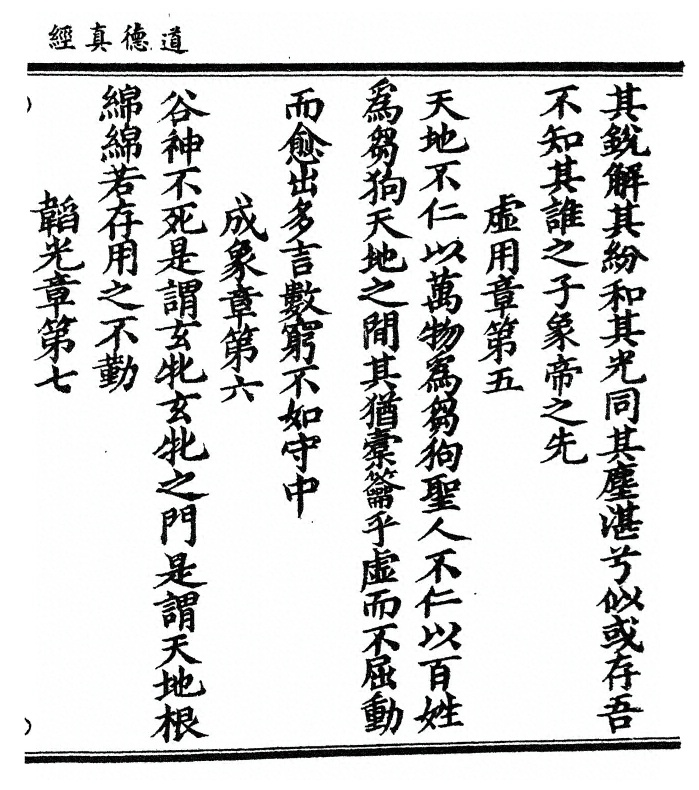 道德真經
其銳解其紛和其光同其塵湛兮似或存吾
不知其誰之子象帝之先
虛用章第五
天地不仁以萬物為芻狗聖人不仁以百姓
為芻狗天地之間其猶橐籥乎虛而不屈動
而愈出多言數窮不如守中
成象章第六
谷神不死是謂玄牝玄牝之門是謂天地根
綿綿若存用之不勤
韜光章第七